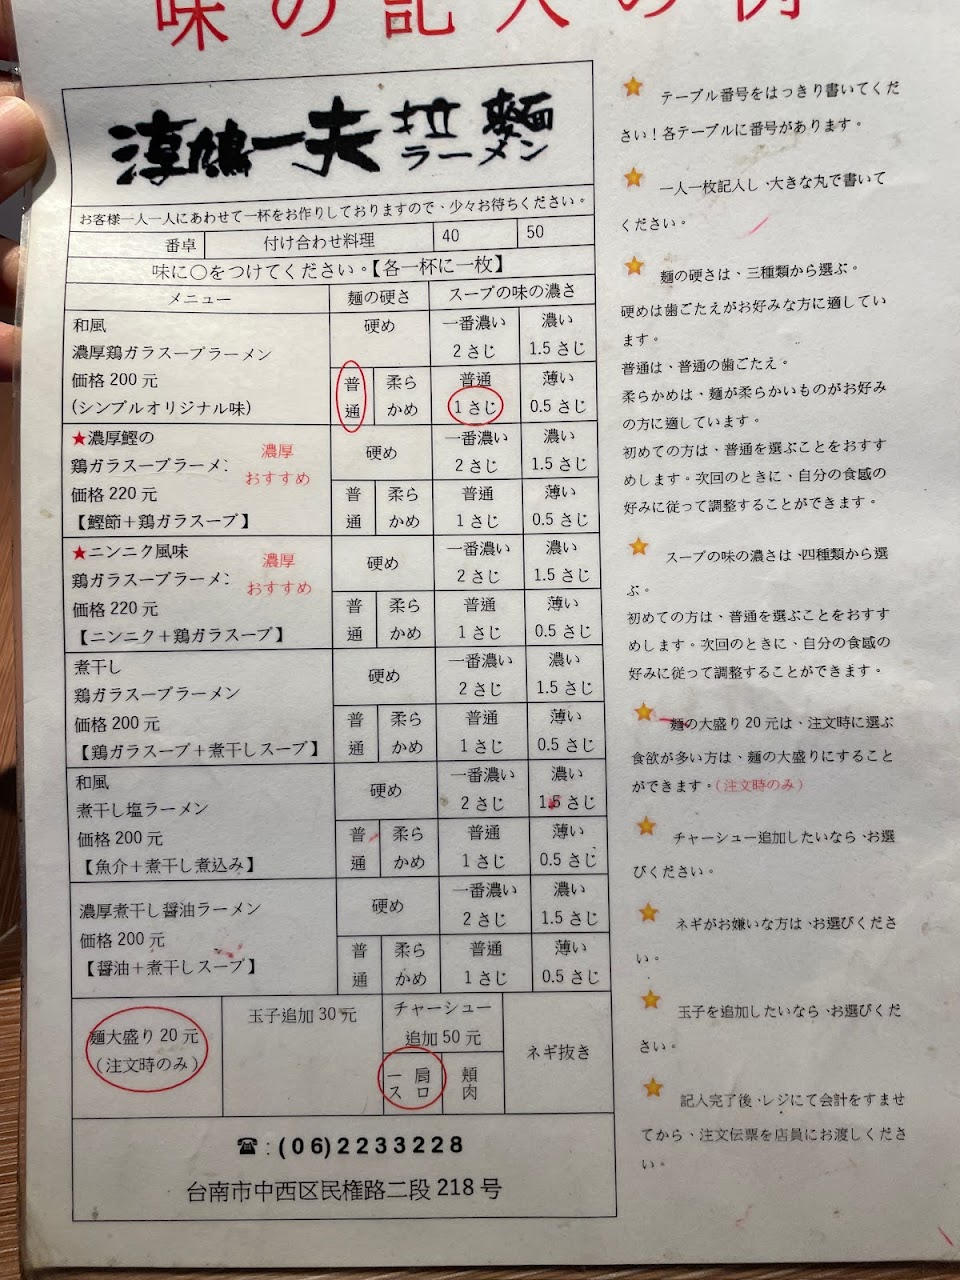 味の記入の例
淳鳩一夫 拉麵
ラーメン
お客様一人一人にあわせて一杯をお作りしておりますので、少々お待ちください。
番卓 付け合わせ料理 40 50
味に○をつけてください。【各一杯に一枚】
メニュー 麺の硬さ スープの味の濃さ
和風
濃厚鶏ガラスープラーメン
価格200元
(シンプルオリジナル味)
硬め
普通
柔らかめ
一番濃い
2さじ
濃い
1.5さじ
普通
1さじ
薄い
0.5さじ
★濃厚鰹の
鶏ガラスープラーメン
価格220元
【鰹節＋鶏ガラスープ】
濃厚
おすすめ
硬め
普通
柔らかめ
一番濃い
2さじ
濃い
1.5さじ
普通
1さじ
薄い
0.5さじ
★ニンニク風味
鶏ガラスープラーメン
価格220元
【ニンニク＋鶏ガラスープ】
濃厚
おすすめ
硬め
普通
柔らかめ
一番濃い
2さじ
濃い
1.5さじ
普通
1さじ
薄い
0.5さじ
煮干し
鶏ガラスープラーメン
価格200元
【鶏ガラスープ＋煮干しスープ】
硬め
普通
柔らかめ
一番濃い
2さじ
濃い
1.5さじ
普通
1さじ
薄い
0.5さじ
和風
煮干し塩ラーメン
価格200元
【魚介＋煮干し煮込み】
硬め
普通
柔らかめ
一番濃い
2さじ
濃い
1.5さじ
普通
1さじ
薄い
0.5さじ
濃厚煮干し醤油ラーメン
価格200元
【醤油＋煮干しスープ】
硬め
普通
柔らかめ
一番濃い
2さじ
濃い
1.5さじ
普通
1さじ
薄い
0.5さじ
麺大盛り20元
（注文時のみ）
玉子追加30元
チャーシュー
追加50元
肩ロ
ース
頬肉
ネギ抜き
☎：(06)2233228
台南市中西区民権路二段218号
テーブル番号をはっきり書いてくだ
さい！各テーブルに番号があります。
一人一枚記入し、大きな丸で書いて
ください。
麺の硬さは、三種類から選ぶ。
硬めは歯ごたえがお好みな方に適してい
ます。
普通は、普通の歯ごたえ。
柔らかめは、麺が柔らかいものがお好み
の方に適しています。
初めての方は、普通を選ぶことをおすす
めします。次回のときに、自分の食感の
好みに従って調整することができます。
スープの味の濃さは、四種類から選
ぶ。
初めての方は、普通を選ぶことをおすす
めします。次回のときに、自分の食感の
好みに従って調整することができます。
麺の大盛り20元は、注文時に選ぶ
食欲が多い方は、麺の大盛りにすること
ができます。（注文時のみ）
チャーシュー追加したいなら、お選
びください。
ネギがお嫌いな方は、お選びくださ
い。
玉子を追加したいなら、お選びくだ
さい。
記入完了後、レジにて会計をすませ
てから、注文伝票を店員にお渡しくださ
い。